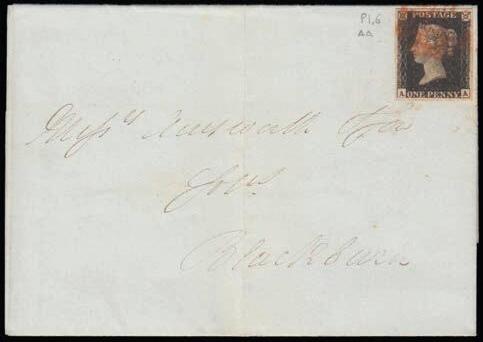 Pl.6
AA
POSTAGE
A A
ONE PENNY
Messrs Ainsworth
Sons
Blackburn